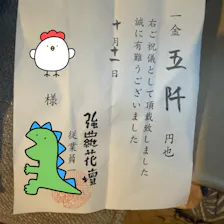 一金 五阡 円也
右ご祝儀として頂戴致しました
誠に有難うございました
十月十一日
様
強羅花壇
従業員一